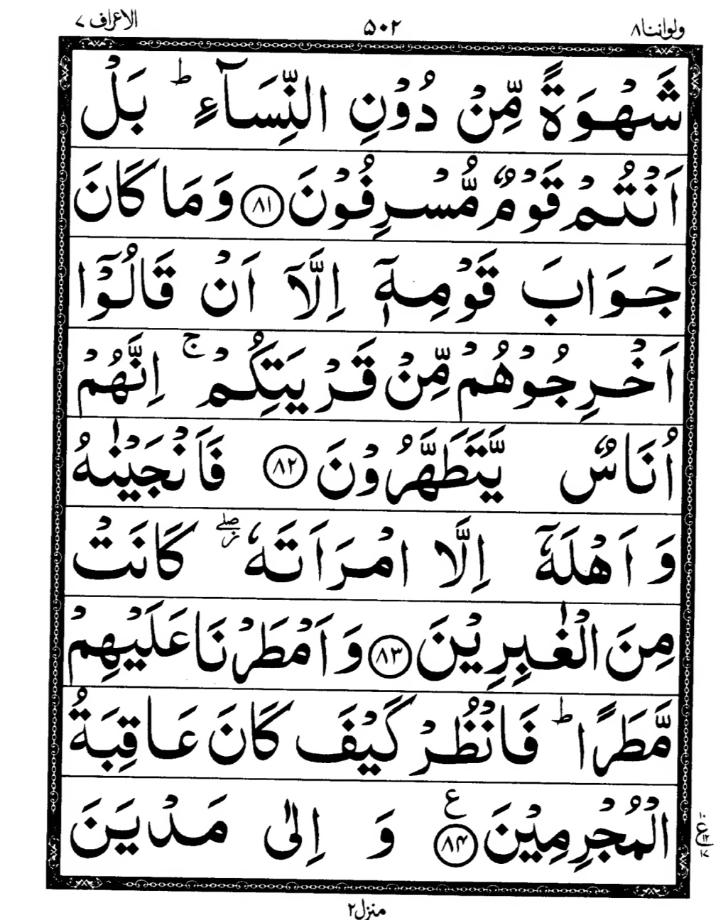 ولواننا٨ ٥٠٢ الاعراف ٧
شَهْوَةً مِّنْ دُوْنِ النِّسَآءِ ؕ بَلْ
اَنْتُمْ قَوْمٌ مُّسْرِفُوْنَ ﴿٨١﴾ وَمَا كَانَ
جَوَابَ قَوْمِهٖۤ اِلَّاۤ اَنْ قَالُوْۤا
اَخْرِجُوْهُمْ مِّنْ قَرْيَتِكُمْ ۚ اِنَّهُمْ
اُنَاسٌ يَّتَطَهَّرُوْنَ ﴿٨٢﴾ فَاَنْجَيْنٰهُ
وَ اَهْلَهٗۤ اِلَّا امْرَاَتَهٗ ۖز كَانَتْ
مِنَ الْغٰبِرِيْنَ ﴿٨٣﴾ وَ اَمْطَرْنَا عَلَيْهِمْ
مَّطَرًا ؕ فَانْظُرْ كَيْفَ كَانَ عَاقِبَةُ
الْمُجْرِمِيْنَ ﴿٨٤﴾ ع وَ اِلٰى مَدْيَنَ
منزل٢